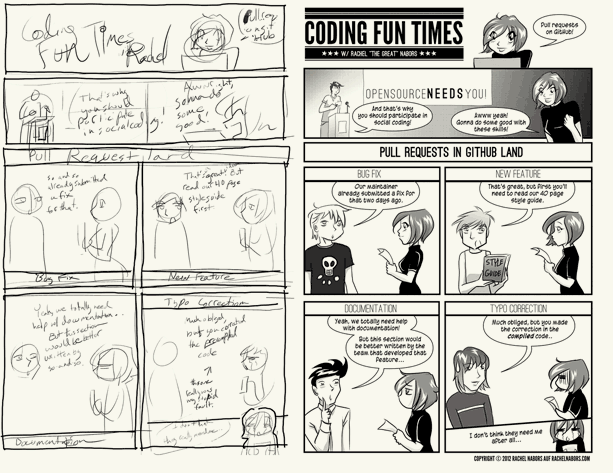 Coding
Fun Times
That's why
you should
participate
in social coding!
some
good!
Pull Request land
so and so
already submitted
a fix
for that.
read our 40 page
style guide
first
Bug Fix
New Feature
Yeah, we totally need
help w/ documentation..
But this section
would be better
written by
so and so.
Documentation
Typo Correction
Much obliged,
but you corrected
the
code
CODING FUN TIMES
★★★ W/ RACHEL "THE GREAT" NABORS ★★★
Pull requests
on GitHub!
OPENSOURCENEEDSYOU!
And that's why
you should participate in
social coding!
Awww yeah!
Gonna do some good with
these skills!
PULL REQUESTS IN GITHUB LAND
BUG FIX
Our maintainer
already submitted a fix for
that two days ago.
NEW FEATURE
That's great, but first you'll
need to read our 40 page
style guide.
STYLE
GUIDE
DOCUMENTATION
Yeah, we totally need help
with documentation!
But this section would
be better written by the
team that developed that
feature...
TYPO CORRECTION
Much obliged, but you made
the correction in the
compiled code..
I don't think they need me
after all...
COPYRIGHT © 2012 RACHEL NABORS AUF RACHELNABORS.COM